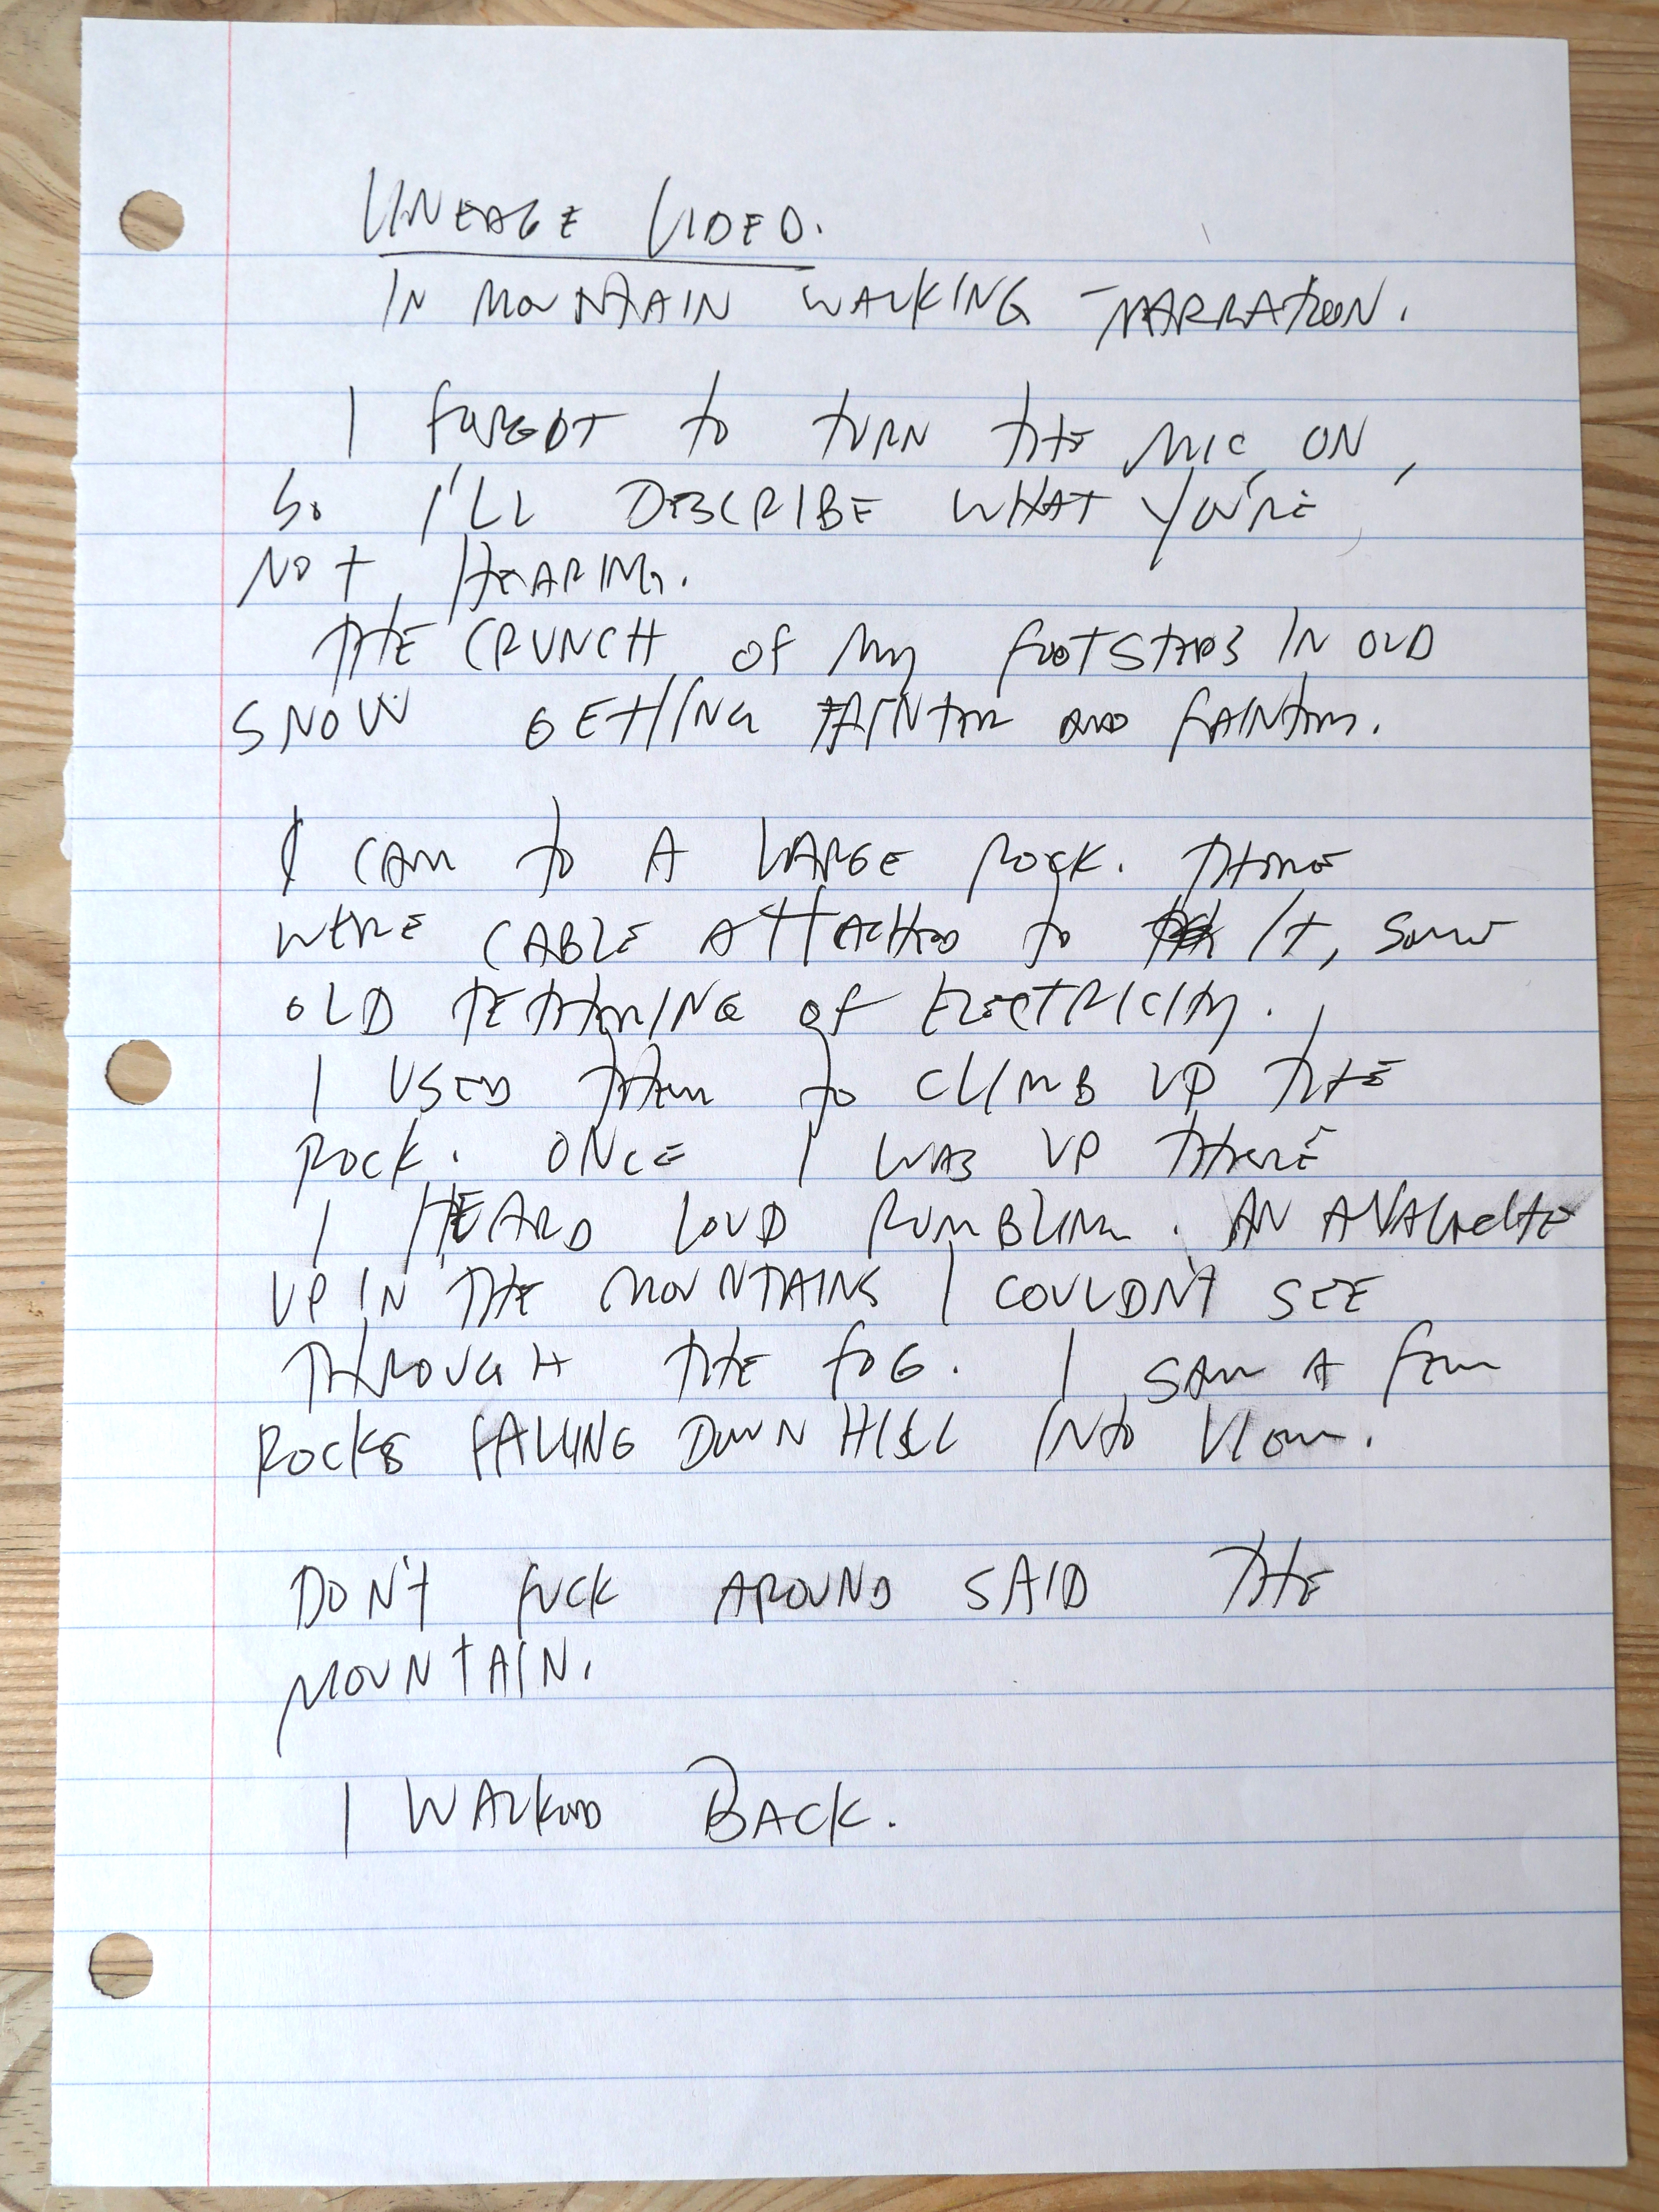 LINEAGE VIDEO.
IN MOUNTAIN WALKING NARRATION.
I FORGOT TO TURN THE MIC ON,
SO I'LL DESCRIBE WHAT YOU'RE
NOT HEARING.
THE CRUNCH OF MY FOOTSTEPS IN OLD
SNOW GETTING FAINTER AND FAINTER.
I CAM TO A LARGE ROCK. THERE
WERE CABLE ATTACHED TO IT, SOME
OLD TETHERING OF ELECTRICITY.
I USED THEM TO CLIMB UP THE
ROCK. ONCE I WAS UP THERE
I HEARD LOUD RUMBLING. AN AVALANCHE
UP IN THE MOUNTAINS I COULDN'T SEE
THROUGH THE FOG. I SAW A FEW
ROCKS FALLING DOWN HILL INTO VIEW.
DON'T FUCK AROUND SAID THE
MOUNTAIN.
I WALKED BACK.